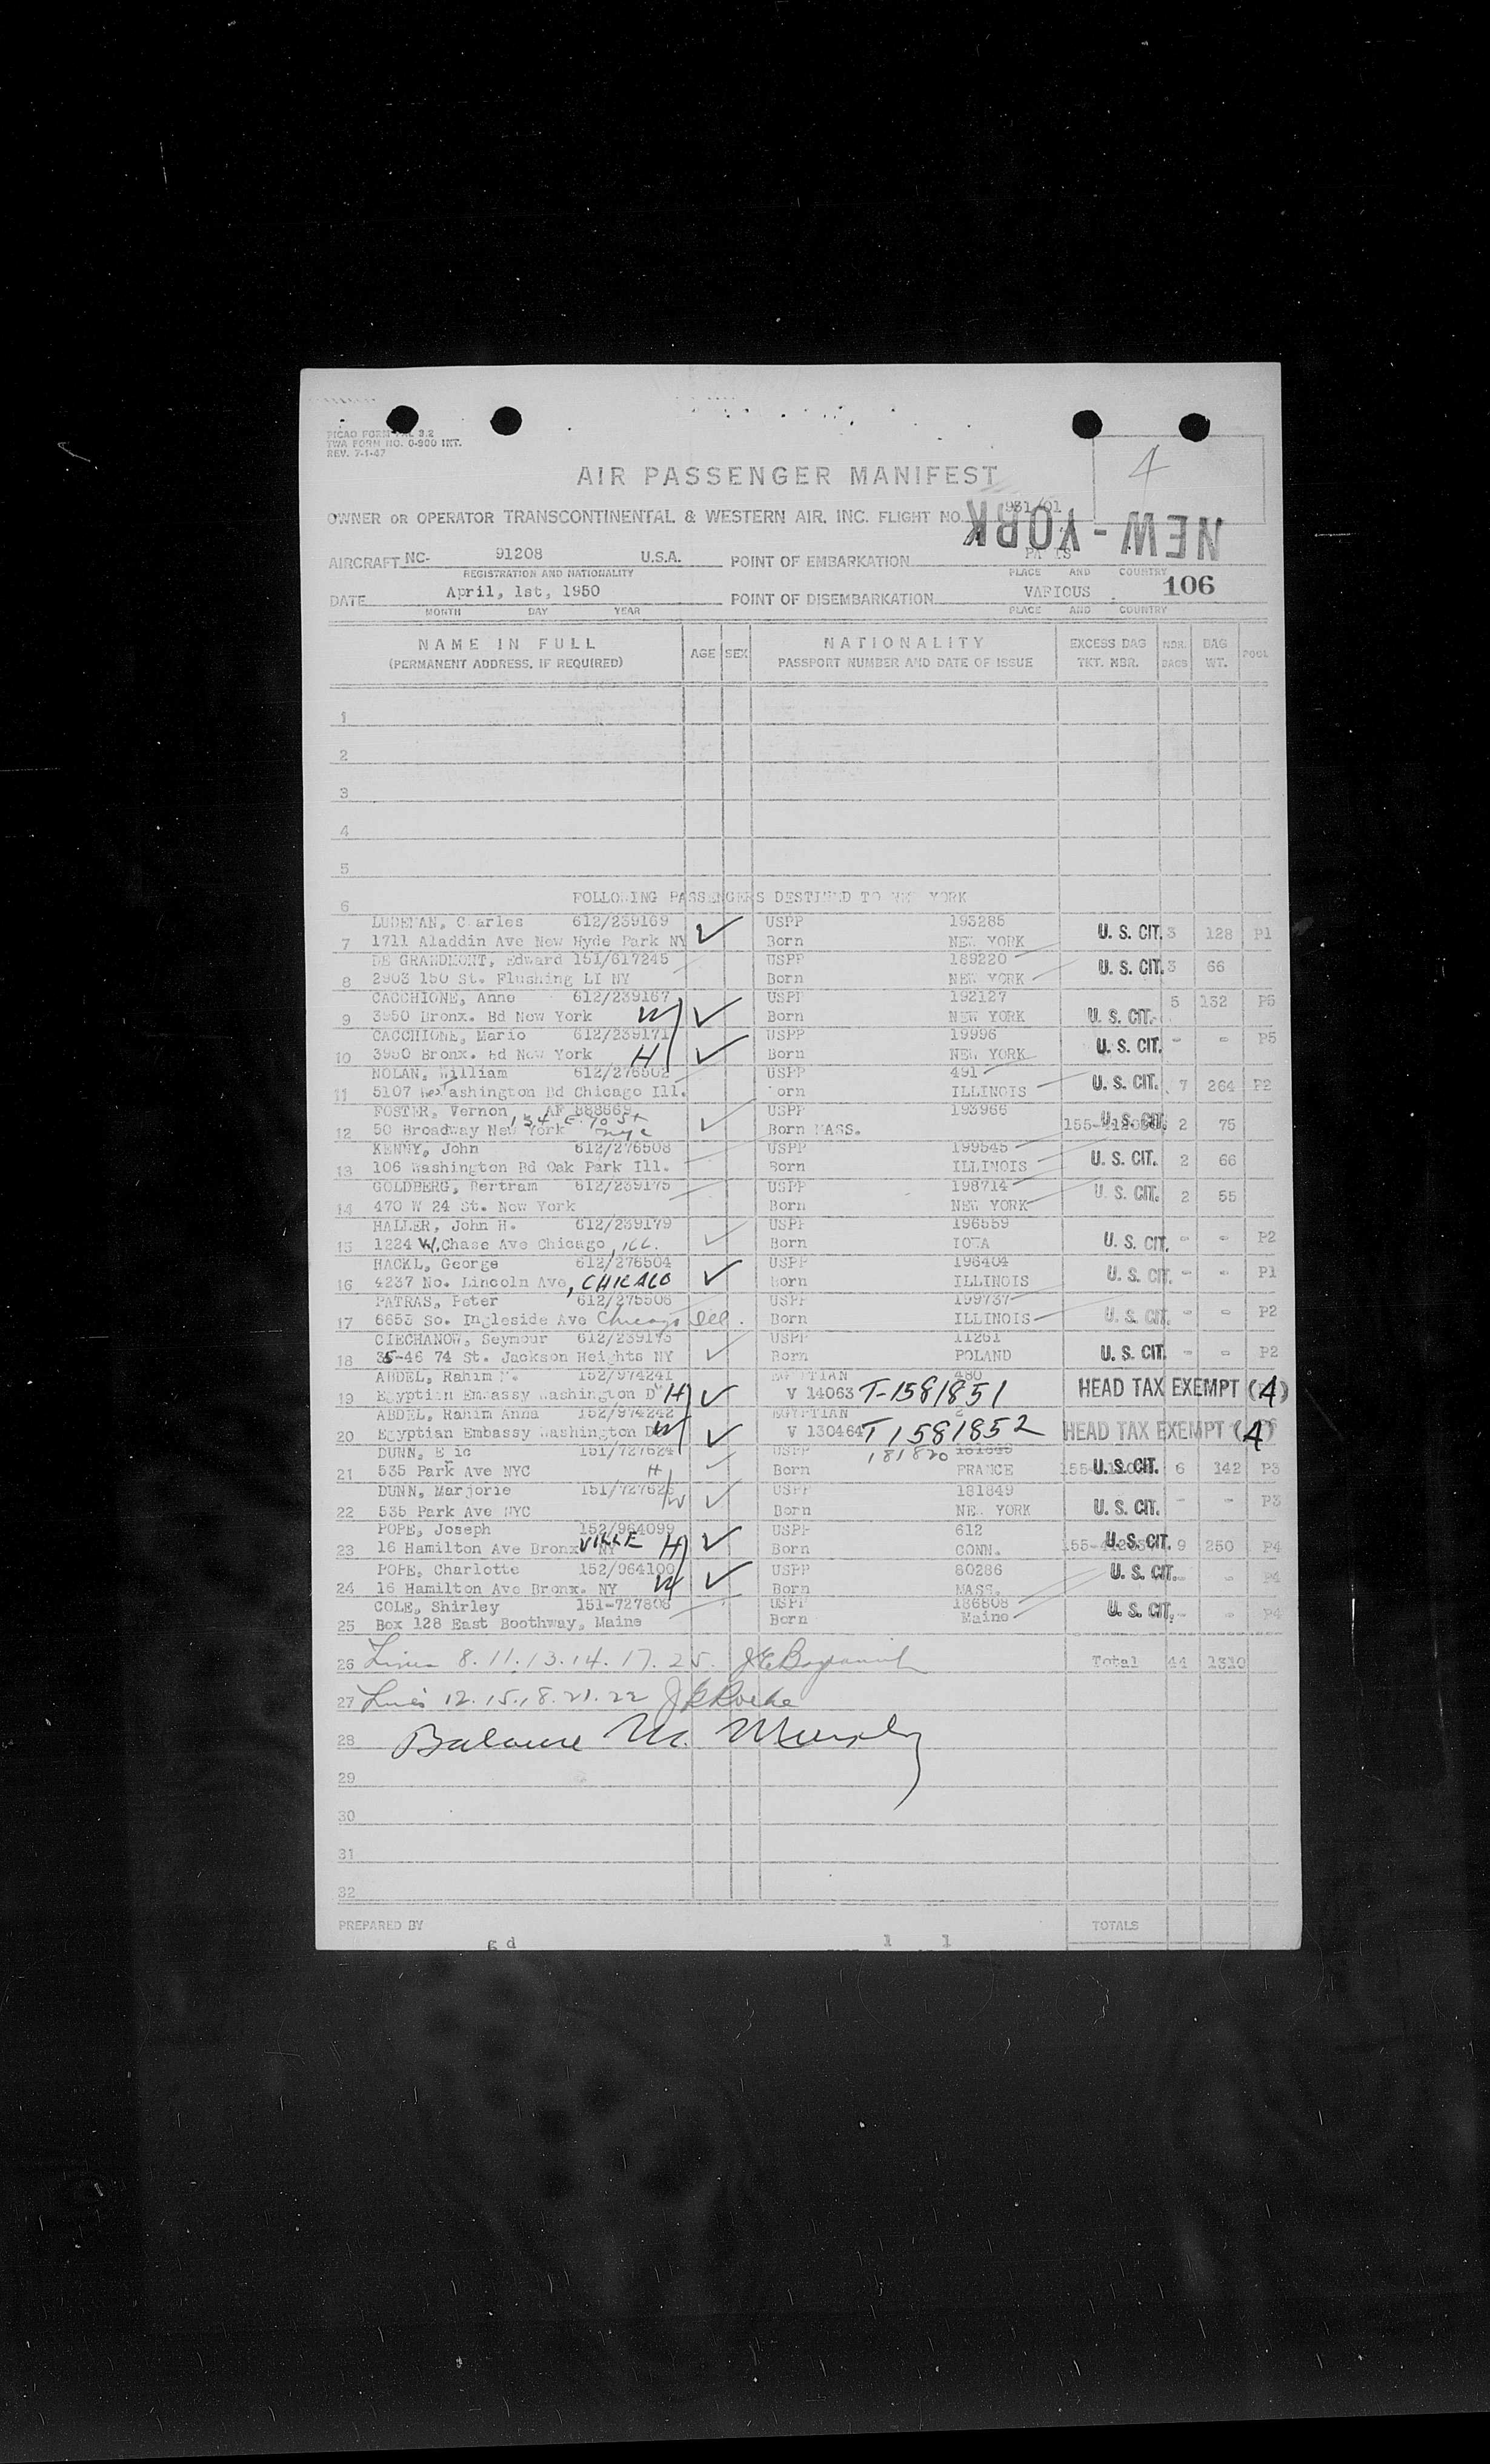 PICAO FORM 3.2
TWA FORM NO. 0-900 INT.
REV. 7-1-47
4
AIR PASSENGER MANIFEST
OWNER OR OPERATOR TRANSCONTINENTAL & WESTERN AIR. INC. FLIGHT NO. 931/01
NEW-YORK
AIRCRAFT NC- 91208 U.S.A. POINT OF EMBARKATION PA IS
REGISTRATION AND NATIONALITY PLACE AND COUNTRY
DATE April, 1st, 1950 POINT OF DISEMBARKATION VARIOUS 106
MONTH DAY YEAR PLACE AND COUNTRY
NAME IN FULL AGE SEX NATIONALITY EXCESS BAG NBR. BAG POOL
(PERMANENT ADDRESS, IF REQUIRED) PASSPORT NUMBER AND DATE OF ISSUE TKT. NBR. BAGS WT.
1
2
3
4
5
6 FOLLOWING PASSENGERS DESTINED TO NEW YORK
LUDEMAN, C arles 612/239169 USPP 193285
7 1711 Aladdin Ave New Hyde Park NY Born NEW YORK U. S. CIT. 3 128 P1
DE GRANDMONT, Edward 151/617245 USPP 189220
8 2903 150 St. Flushing LI NY Born NEW YORK U. S. CIT. 3 66
CACCHIONE, Anne 612/239167 USPP 192127 5 132 P5
9 3950 Bronx. Bd New York W Born NEW YORK U. S. CIT.
CACCHIONE, Mario 612/239171 USPP 19996
10 3950 Bronx. Bd New York H Born NEW YORK U. S. CIT. - - P5
NOLAN, William 612/276502 USPP 491
11 5107 West ashington Bd Chicago Ill. orn ILLINOIS U. S. CIT. 7 264 P2
FOSTER, Vernon AF 888669 USPP 193966
134 E. 70 St
12 50 Broadway New York nyc Born MASS. U. S. CIT. 2 75
KENNY, John 612/276508 USPP 199545
13 106 Washington Bd Oak Park Ill. Born ILLINOIS U. S. CIT. 2 66
GOLDBERG, Bertram 612/239175 USPP 198714
14 470 W 24 St. New York Born NEW YORK U. S. CIT. 2 55
HALLER, John H. 612/239179 USPP 196559
15 1224 W. Chase Ave Chicago, Ill. Born IOWA U. S. CIT. - - P2
HACKL, George 612/276504 USPP 196404
16 4237 No. Lincoln Ave, CHICAGO Born ILLINOIS U. S. CIT. - - P1
PATRAS, Peter 612/275506 USPP 199737
17 6653 So. Ingleside Ave Chicago Ill. Born ILLINOIS U. S. CIT. - - P2
CIECHANOW, Seymour 612/239173 USPP 11261
18 35-46 74 St. Jackson Heights NY Born POLAND U. S. CIT. - - P2
ABDEL, Rahim 152/974241 EGYPTIAN 480
19 Egyptian Embassy Washington D H V 14063 T-1581851 HEAD TAX EXEMPT (4)
ABDEL, Rahim Anna 152/974242 EGYPTIAN 2
20 Egyptian Embassy Washington D W V 130464 T1581852 HEAD TAX EXEMPT (4)
DUNN, E ic 151/727624 USPP 181820
21 535 Park Ave NYC H Born FRANCE U. S. CIT. 6 142 P3
DUNN, Marjorie 151/727625 USPP 181849
22 535 Park Ave NYC W Born NE. YORK U. S. CIT. - - P3
POPE, Joseph 152/964099 USPP 612
23 16 Hamilton Ave Bronx VILLE NY H Born CONN. U. S. CIT. 9 250 P4
POPE, Charlotte 152/964100 USPP 80286
24 16 Hamilton Ave Bronx. NY W Born MASS. U. S. CIT. - P4
COLE, Shirley 151-727806 USPP 186808
25 Box 128 East Boothway, Maine Born Maine U. S. CIT. - - P4
26 Lines 8. 11. 13. 14. 17. 25. Total 44 1310
27 Lines 12. 15. 18. 21. 22 J Roche
28 Balance M. Murphy
29
30
31
32
PREPARED BY TOTALS
g d 1 1